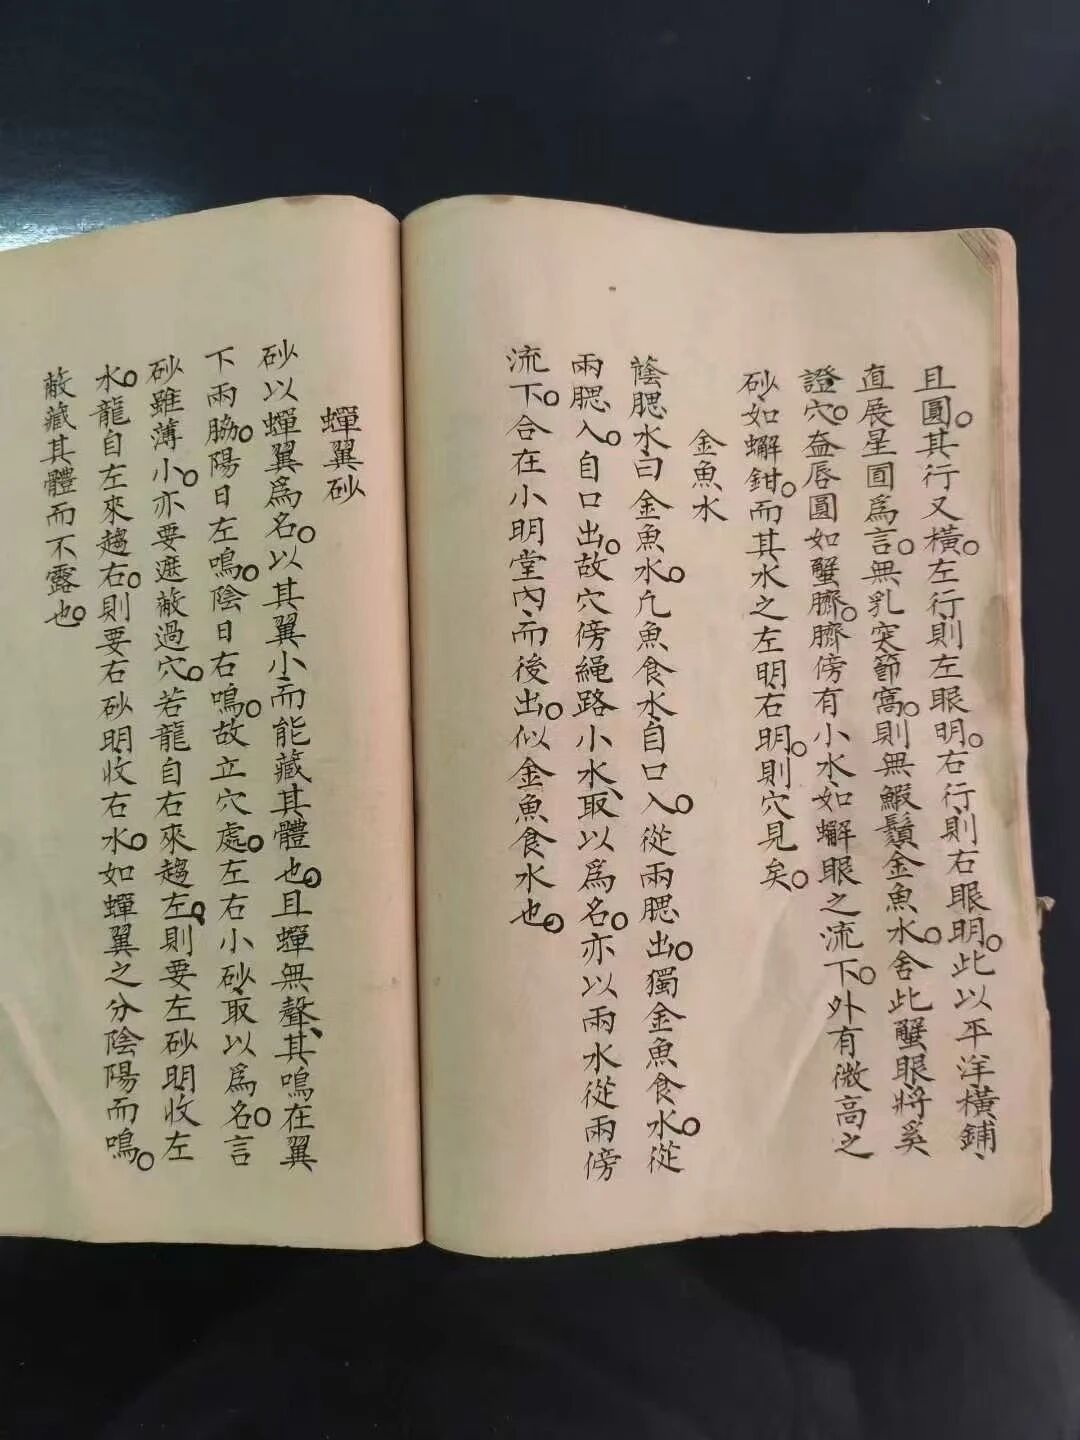 且圓。其行又橫。左行則左眼明。右行則右眼明。此以平洋橫鋪、
直展星面爲言。無乳突節窩。則無鰕鬚金魚水。舍此蟹眼、將奚
證穴。盖唇圓如蟹臍。臍傍有小水、如蠏眼之流下。外有微高之
砂、如蠏鉗。而其水之左明右明。則穴見矣。
金魚水
蔭腮水曰金魚水。凢魚食水自口入。從兩腮出。獨金魚食水。從
兩腮入。自口出。故穴傍繩路小水、取以爲名。亦以兩水從兩傍
流下。合在小明堂內、而後出。似金魚食水也。
蟬翼砂
砂以蟬翼爲名。以其翼小而能藏其體也。且蟬無聲、其鳴在翼
下兩脇。陽日左鳴。陰日右鳴。故立穴處。左右小砂、取以爲名。言
砂雖薄小。亦要遮蔽過穴。若龍自右來趨左。則要左砂明、收左
水。龍自左來趨右。則要右砂明、收右水。如蟬翼之分陰陽而鳴。
蔽藏其體而不露也。